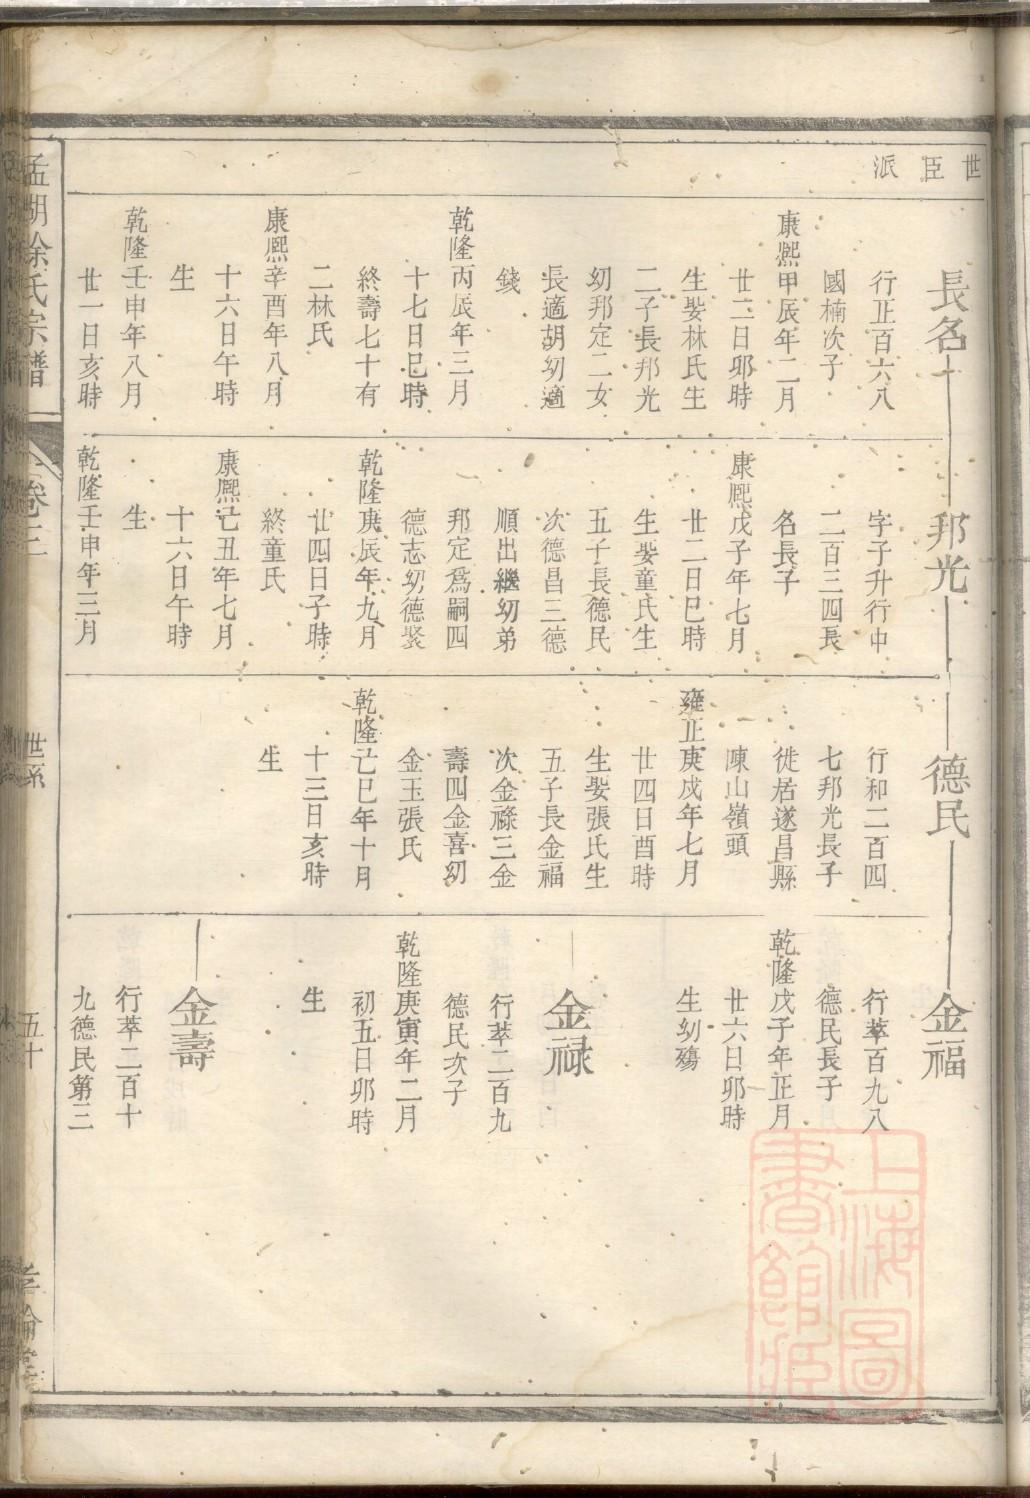 世臣派
長名
行正百六八
國楠次子
康熙甲辰年二月
廿二日卯時
生娶林氏生
二子長邦光
幼邦定二女
長適胡幼適
錢
乾隆丙辰年三月
十七日巳時
終壽七十有
二林氏
康熙辛酉年八月
十六日午時
生
乾隆壬申年八月
廿一日亥時
邦光
字子升行中
二百三四長
名長子
康熙戊子年七月
廿二日巳時
生娶童氏生
五子長德民
次德昌三德
順出繼幼弟
邦定爲嗣四
德志幼德聚
乾隆庚辰年九月
廿四日子時
終童氏
康熙己丑年七月
十六日午時
生
乾隆壬申年三月
德民
行和二百四
七邦光長子
徙居遂昌縣
陳山嶺頭
雍正庚戌年七月
廿四日酉時
生娶張氏生
五子長金福
次金祿三金
壽四金喜幼
金玉張氏
乾隆己巳年十月
十三日亥時
生
金福
行萃百九八
德民長子
乾隆戊子年正月
廿六日卯時
生幼殤
金禄
行萃二百九
德民次子
乾隆庚寅年二月
初五日卯時
生
金壽
行萃二百十
九德民第三
孟湖徐氏宗譜
卷三
世系
五十
上海圖
書館藏